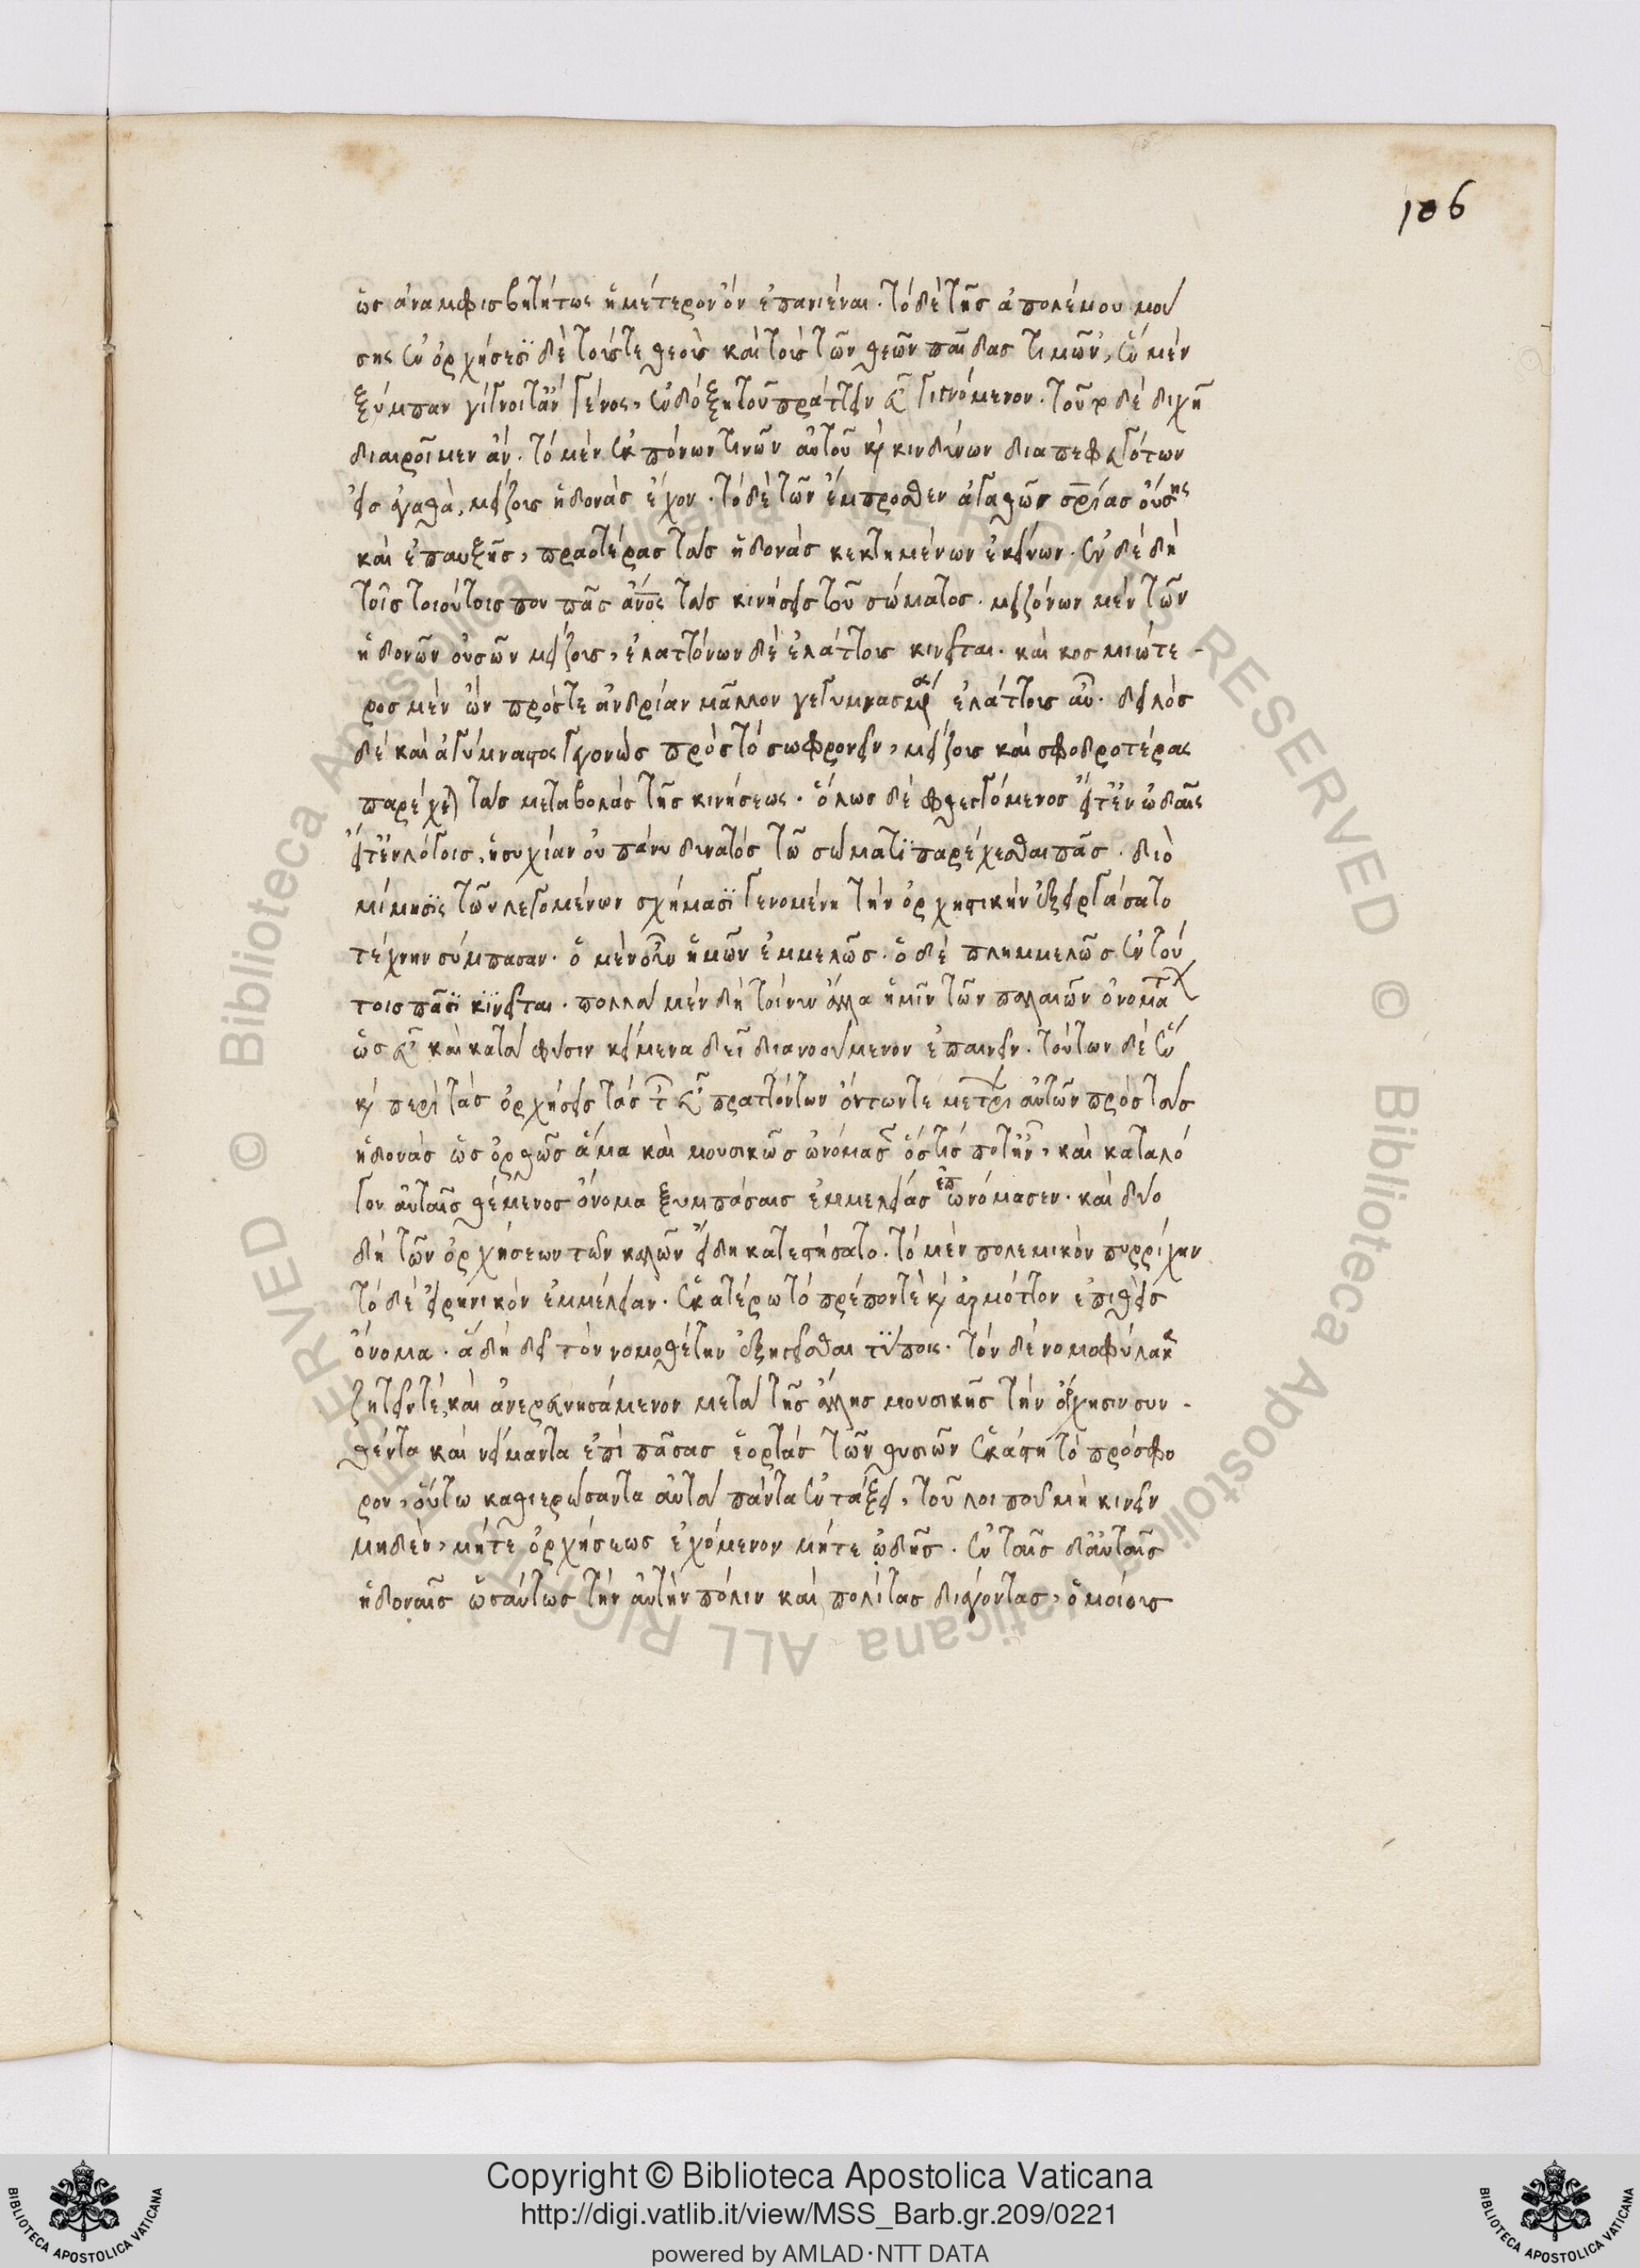 106
ὡς ἀναμφισβητήτως ἡμέτερον ὂν ἐπανιέναι. τὸ δὲ τῆς ἀπολέμου μού
σης ἐν ὀρχήσεσϊ δὲ τοὺς τε θεοὺς καὶ τοὺς τῶν θεῶν παῖδας τιμῶν, ἓν μὲν
ξύμπαν γίγνοιτ' ἂν γένος, ἐν δόξῃ τοῦ πράττειν εὖ γιγνόμενον. τοῦτο δὲ διχῇ
διαιροῖμεν ἄν. τὸ μὲν ἐκ πόνων τινῶν αὐτοῦ καὶ κινδύνων διαπεφευγότων
εἰς ἀγαθὰ, μείζους ἡδονὰς ἔχον. τὸ δὲ τῶν ἔμπροσθεν ἀγαθῶν σρίας οὔσης
καὶ ἐπαυξῆς, πραοτέρας τὰς ἡδονὰς κεκτημένων ἐκείνων. ἐν δὲ δὴ
τοῖς τοιούτοις που πᾶς ἄνος τὰς κινήσεις τοῦ σώματος. μειζόνων μὲν τῶν
ἡδονῶν οὐσῶν μείζους, ἐλαττόνων δὲ ἐλάττους κινεῖται. καὶ κοσμιώτε-
ρος μὲν ὢν πρός τε ἀνδρίαν μᾶλλον γεγυμνασμ ἐλάττους αὖ. δειλὸς
δὲ καὶ ἀγύμναστος γεγονὼς πρὸς τὸ σωφρονεῖν, μείζους καὶ σφοδροτέρας
παρέχεται τὰς μεταβολὰς τῆς κινήσεως. ὅλως δὲ φθεγγόμενος εἴτ' ἐν ᾠδαῖς
εἴτ' ἐν λόγοις, ἡσυχίαν οὐ πάνυ δυνατὸς τῷ σώματϊ παρέχεσθαι πᾶς. διὸ
μίμησϊς τῶν λεγομένων σχήμασϊ γενομένη τὴν ὀρχηστικὴν ἐξειργάσατο
τέχνην σύμπασαν. ὁ μὲν οὖν ἡμῶν ἐμμελῶς. ὁ δὲ πλημμελῶς ἐν τού
τοις πᾶσϊ κϊνεῖται. πολλὰ μὲν δὴ τοίνυν ἄλλα ἡμῖν τῶν παλαιῶν ὀνομάτ
ὡς εὖ καὶ κατὰ φύσιν κείμενα δεῖ διανοούμενον ἐπαινεῖν. τούτων δὲ ἓν
καὶ περὶ τὰς ὀρχήσεις τὰς τ εὖ πραττόντων ὄντων τε μετρί αὐτῶν πρὸς τὰς
ἡδονὰς ὡς ὀρθῶς ἅμα καὶ μουσικῶς ὠνόμασ ὅστις ποτ' ἦν, καὶ κατὰ λό
γον αὐταῖς θέμενος ὄνομα ξυμπάσαις ἐμμελείας ἐπωνόμασεν. καὶ δύο
δὴ τῶν ὀρχήσεων τῶν καλῶν εἴδη κατεστήσατο. τὸ μὲν πολεμικὸν πυρρίχην
τὸ δὲ εἰρηνικὸν ἐμμέλειαν. ἑκατέρω τὸ πρέπον τὲ καὶ ἁρμόττον ἐπιθεὶς
ὄνομα. ἃ δὴ δεῖ τὸν νομοθέτην ἐξηγεῖσθαι τϋποις. τὸν δὲ νομοφύλακα
ζητεῖν τέ, καὶ ἀνερευνησάμενον μετὰ τῆς ἄλλης μουσικῆς τὴν ὄρχησιν συν-
θέντα καὶ νείμαντα ἐπὶ πᾶσας ἑορτὰς τῶν θυσιῶν ἑκάστῃ τὸ πρόσφο
ρον, οὕτω καθιερώσαντα αὐτὰ πάντα ἐν τάξει, τοῦ λοιποῦ μὴ κινεῖν
μηδὲν, μήτε ὀρχήσεως ἐχόμενον μήτε ᾠδῆς. ἐν ταῖς δ' αὐταῖς
ἡδοναῖς ὡσαύτως τὴν αὐτὴν πόλιν καὶ πολίτας διάγοντας, ὁμοίους
© Biblioteca Apostolica Vaticana ALL RIGHTS RESERVED © Biblioteca Apostolica Vaticana ALL RIGHTS RESERVED
BIBLIOTECA APOSTOLICA VATICANA
Copyright © Biblioteca Apostolica Vaticana
http://digi.vatlib.it/view/MSS_Barb.gr.209/0221
powered by AMLAD·NTT DATA
BIBLIOTECA APOSTOLICA VATICANA